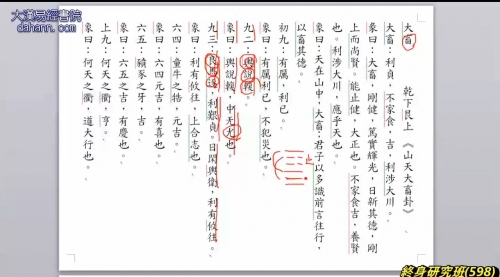 大漠易經書院
dahann.com
大畜　乾下艮上《山天大畜卦》
大畜：利貞，不家食，吉，利涉大川。
彖曰：大畜，剛健，篤實輝光，日新其德，剛
上而尚賢。能止健，大正也。不家食吉，養賢
也。利涉大川，應乎天也。
象曰：天在山中，大畜，君子以多識前言往行，
以畜其德。
初九：有厲，利已。
象曰：有厲利已，不犯災也。
九二：輿說輹。
象曰：輿說輹，中无尤也。
九三：良馬逐，利艱貞。日閑輿衛，利有攸往。
象曰：利有攸往，上合志也。
六四：童牛之牿，元吉。
象曰：六四元吉，有喜也。
六五：豶豕之牙，吉。
象曰：六五之吉，有慶也。
上九：何天之衢，亨。
象曰：何天之衢，道大行也。
終身研究班(598)